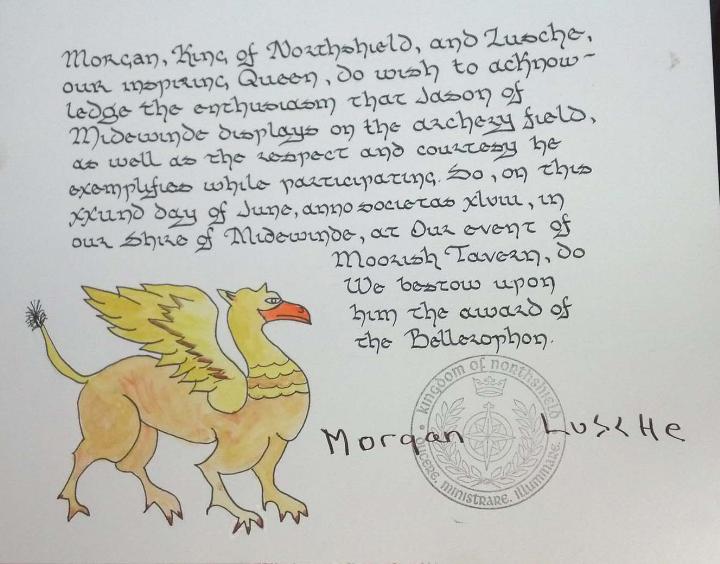 Morgan, King of Northshield, and Lusche,
our inspiring Queen, do wish to acknow-
ledge the enthusiasm that Jason of
Midewinde displays on the archery field,
as well as the respect and courtesy he
exemplifies while participating. So, on this
xxiind day of June, anno societas xlviii, in
our Shire of Midewinde, at Our event of
Moorish Tavern, do
We bestow upon
him the award of
the Bellerophon.
Kingdom of Northshield
Morgan Lusche
Ducere, Ministrare, Illuminare